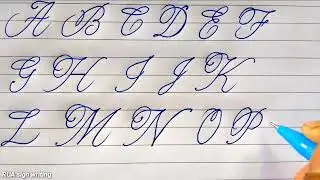 A B C D E F
G H I J K
L M N O P
RUA sign writing